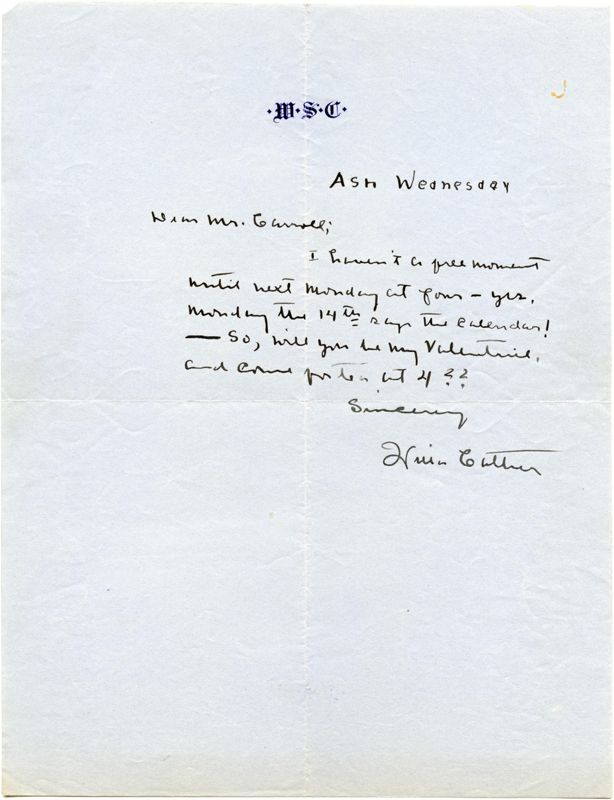 ·W·S·C·
Ash Wednesday
Dear Mr. Carroll;
I haven't a free moment
until next Monday at four - yes,
Monday the 14th says the calendar!
— So, will you be my Valentine,
and come for tea at 4 ??
Sincerely
Willa Cather